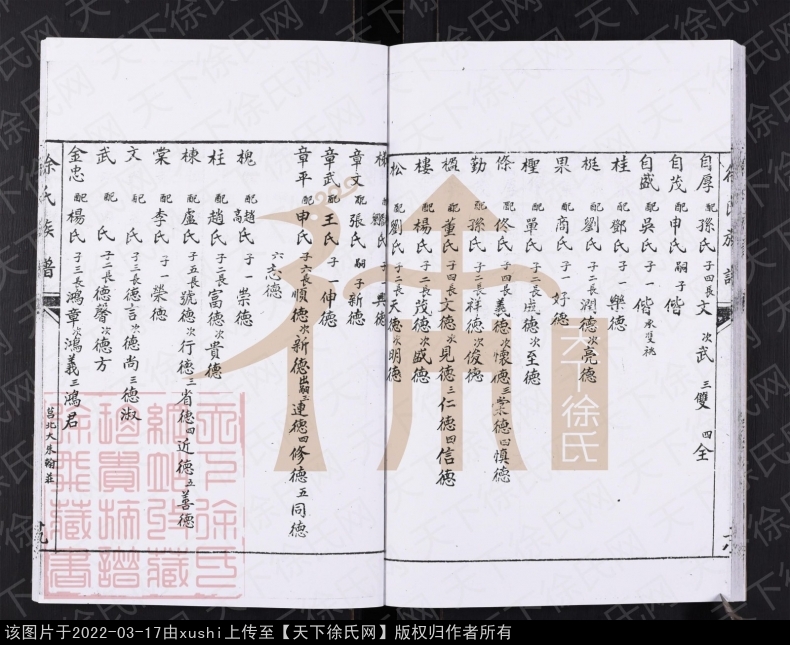 徐氏族譜
自厚 配孫氏 子四長文 次武 三雙 四全
自茂 配申氏 嗣子偕
自盛 配吳氏 子一偕 承雙祧
桂 配鄧氏 子一樂德
梃 配劉氏 子二長潤德 次亮德
果 配商氏 子一好德
檉 配單氏 子二長 德 次至德
條 配佟氏 子四長義德 次懷德 三崇德 四慎德
勤 配孫氏 子二長祥德 次俊德
楹 配董氏 子四長文德 次見德 三仁德 四信德
樓 配楊氏 子二長茂德 次盛德
松 配劉氏 子二長天德 次明德
配 氏 子一興德
章文 配張氏 嗣子新德
章武 配王氏 子一伸德
章平 配申氏 子六長順德 次新德出嗣 三連德 四修德 五同德
六志德
槐 配趙高氏 子一崇德
柱 配趙氏 子二長富德 次貴德
棟 配盧氏 子五長號德 次行德 三省德 四近德 五善德
棠 配李氏 子一榮德
文 配 氏 子三長德言 次德尚 三德淑
武 配 氏 子二長德馨 次德方
金忠 配楊氏 子三長鴻章 次鴻義 三鴻君
徐氏族譜
莒北大朱翰莊
十九
天下徐氏
天下徐氏網
天下徐氏网
该图片于2022-03-17由xushi上传至【天下徐氏网】版权归作者所有